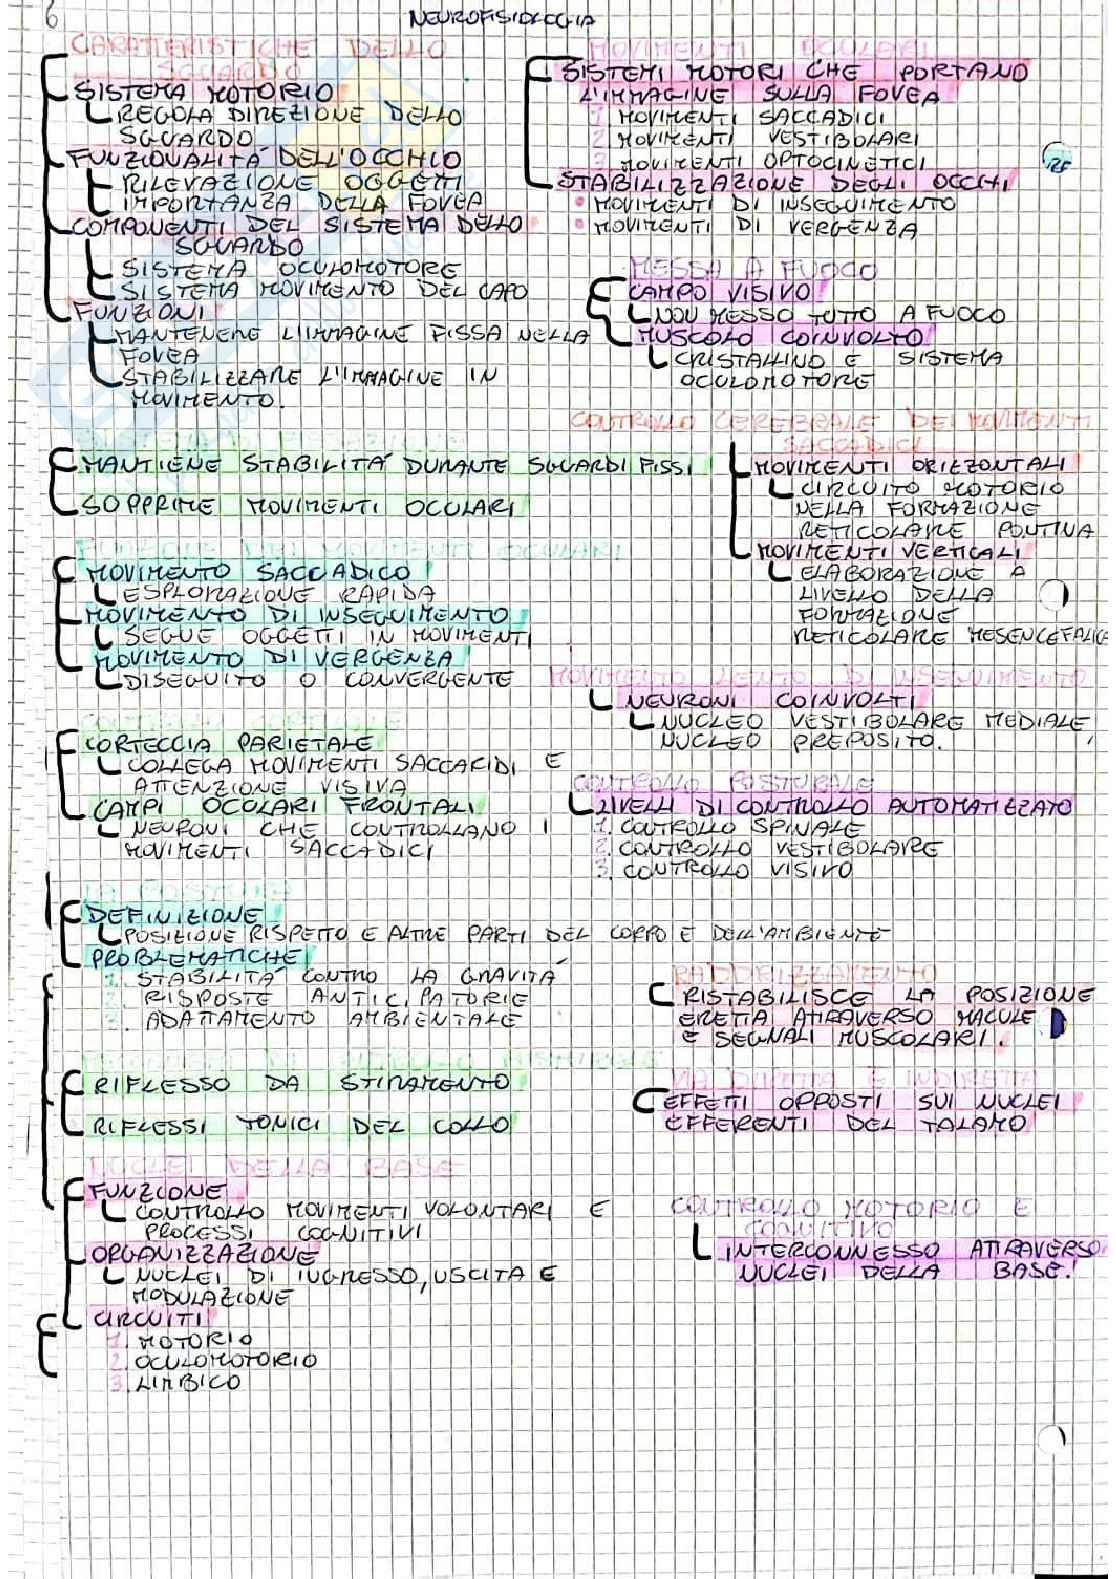 6
NEUROFISIOLOGIA
CARATTERISTICHE DELLO
SGUARDO
SISTEMA MOTORIO
REGOLA DIREZIONE DELLO
SGUARDO
FUNZIONALITÀ DELL'OCCHIO
RILEVAZIONE OGGETTI
IMPORTANZA DELLA FOVEA
COMPONENTI DEL SISTEMA DELLO
SGUARDO
SISTEMA OCULOMOTORE
SISTEMA MOVIMENTO DEL CAPO
FUNZIONI
MANTENERE L'IMMAGINE FISSA NELLA
FOVEA
STABILIZZARE L'IMMAGINE IN
MOVIMENTO.
MOVIMENTI OCULARI
SISTEMI MOTORI CHE PORTANO
L'IMMAGINE SULLA FOVEA
1 MOVIMENTI SACCADICI
2 MOVIMENTI VESTIBOLARI
3 MOVIMENTI OPTOCINETICI
STABILIZZAZIONE DEGLI OCCHI
• MOVIMENTI DI INSEGUIMENTO
• MOVIMENTI DI VERGENZA
MESSA A FUOCO
CAMPO VISIVO
NON MESSO TUTTO A FUOCO
MUSCOLO COINVOLTO
CRISTALLINO E SISTEMA
OCULOMOTORE
MANTIENE STABILITÀ DURANTE SGUARDI FISSI
SOPPRIME MOVIMENTI OCULARI
CONTROLLO CEREBRALE DEI MOVIMENTI
SACCADICI
MOVIMENTI ORIZZONTALI
CIRCUITO MOTORIO
NELLA FORMAZIONE
RETICOLARE PONTINA
MOVIMENTI VERTICALI
ELABORAZIONE A
LIVELLO DELLA
FORMAZIONE
RETICOLARE MESENCEFALICA
FUNZIONE DEI MOVIMENTI OCULARI
MOVIMENTO SACCADICO
ESPLORAZIONE RAPIDA
MOVIMENTO DI INSEGUIMENTO
SEGUE OGGETTI IN MOVIMENTI
MOVIMENTO DI VERGENZA
DISEGUITO O CONVERGENTE
MOVIMENTO LENTO DI INSEGUIMENTO
NEURONI COINVOLTI
NUCLEO VESTIBOLARE MEDIALE,
NUCLEO PREPOSITO.
CONTROLLO CORTICALE
CORTECCIA PARIETALE
COLLEGA MOVIMENTI SACCARIDI E
ATTENZIONE VISIVA
CAMPI OCULARI FRONTALI
NEURONI CHE CONTROLLANO I
MOVIMENTI SACCADICI
CONTROLLO POSTURALE
LIVELLI DI CONTROLLO AUTOMATIZZATO
1. CONTROLLO SPINALE
2. CONTROLLO VESTIBOLARE
3. CONTROLLO VISIVO
LA POSTURA
DEFINIZIONE
POSIZIONE RISPETTO E ALTRE PARTI DEL CORPO E DELL'AMBIENTE
PROBLEMATICHE
1. STABILITÀ CONTRO LA GRAVITÀ
2. RISPOSTE ANTICIPATORIE
3. ADATTAMENTO AMBIENTALE
RADDRIZZAMENTO
RISTABILISCE LA POSIZIONE
ERETTA ATTRAVERSO MACULE
E SEGNALI MUSCOLARI.
RIFLESSO DA STIRAMENTO
RIFLESSI TONICI DEL COLLO
VIA DIRETTA E INDIRETTA
EFFETTI OPPOSTI SUI NUCLEI
EFFERENTI DEL TALAMO
NUCLEI DELLA BASE
FUNZIONE
CONTROLLO MOVIMENTI VOLONTARI E
PROCESSI COGNITIVI
ORGANIZZAZIONE
NUCLEI DI INGRESSO, USCITA E
MODULAZIONE
CIRCUITI
1. MOTORIO
2. OCULOMOTORIO
3. LIMBICO
CONTROLLO MOTORIO E
COGNITIVO
INTERCONNESSO ATTRAVERSO
NUCLEI DELLA BASE!